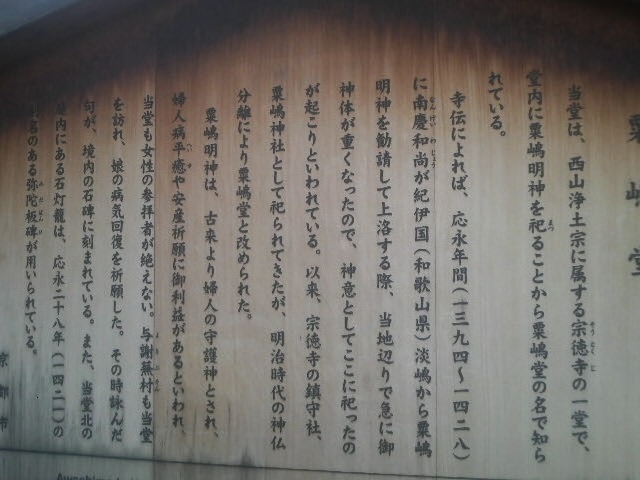 粟嶋堂
当堂は、西山浄土宗に属する宗徳寺の一堂で、
堂内に粟嶋明神を祀ることから粟嶋堂の名で知ら
れている。
寺伝によれば、応永年間(一三九四〜一四二八)
に南慶和尚が紀伊国(和歌山県)淡嶋から粟嶋
明神を勧請して上洛する際、当地辺りで急に御
神体が重くなったので、神意としてここに祀ったの
が起こりといわれている。以来、宗徳寺の鎮守社、
粟嶋神社として祀られてきたが、明治時代の神仏
分離により粟嶋堂と改められた。
粟嶋明神は、古来より婦人の守護神とされ、
婦人病平癒や安産祈願に御利益があるといわれ、
当堂も女性の参拝者が絶えない。与謝蕪村も当堂
を訪れ、娘の病気回復を祈願した。その時詠んだ
句が、境内の石碑に刻まれている。また、当堂北の
境内にある石灯籠は、応永二十八年(一四二一)の
るのある弥陀板碑が用いられている。
京都市